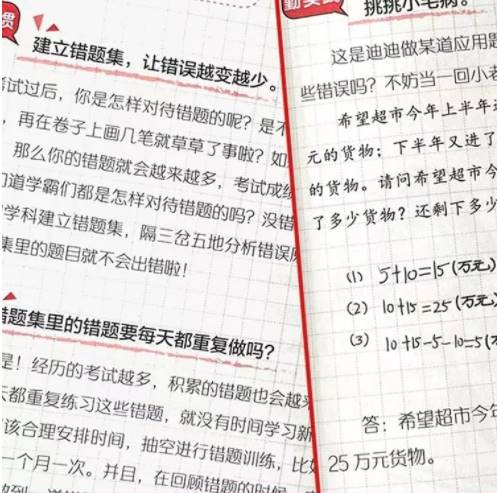 惯
建立错题集，让错误越变越少。
试过后，你是怎样对待错题的呢？是不
，再在卷子上画几笔就草草了事啦？如
那么你的错题就会越来越多，考试成绩
道学霸们都是怎样对待错题的吗？没错
学科建立错题集，隔三岔五地分析错误原
集里的题目就不会出错啦！
错题集里的错题要每天都重复做吗？
是！经历的考试越多，积累的错题也会越
天都重复练习这些错题，就没有时间学习新
该合理安排时间，抽空进行错题训练，比如
一个月一次。并且，在回顾错题的时候
挑挑小毛病。
这是迪迪做某道应用题
些错误吗？不妨当一回小老
希望超市今年上半年
元的货物；下半年又进了
的货物。请问希望超市今
了多少货物？还剩下多少
(1) 5+10=15(万元)
(2) 10+15=25(万元)
(3) 10+15-5-10=5(万
答：希望超市今年
25万元货物。